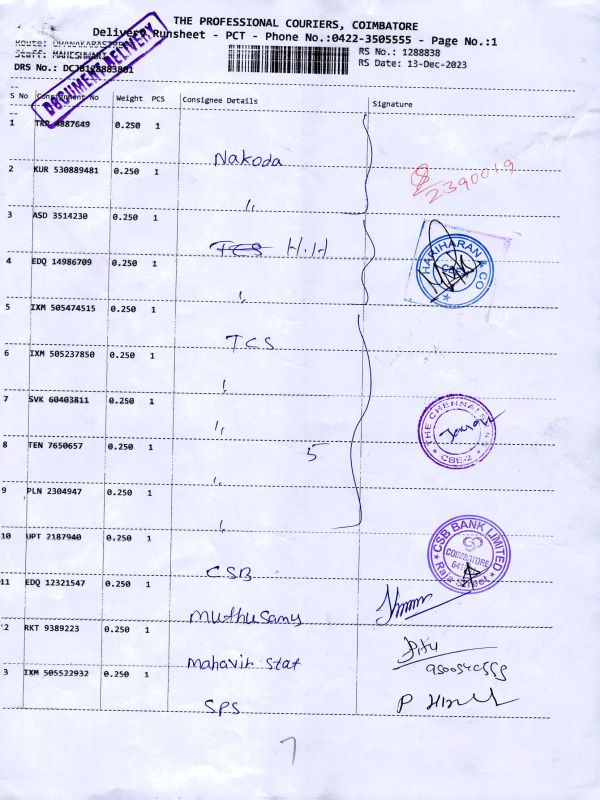 THE PROFESSIONAL COURIERS, COIMBATORE
Delivery Runsheet - PCT - Phone No.:0422-3505555 - Page No.:1
Route:
Staff: MAHESHWARI
RS No.: 1288838
DRS No.:
RS Date: 13-Dec-2023
DOCUMENT DELIVERY
S No Consignment No Weight PCS Consignee Details Signature
1 4887649 0.250 1 Nakoda
2 KUR 530889481 0.250 1 ,,
2390019
3 ASD 3514230 0.250 1 TCS H.H
4 EDQ 14986709 0.250 1 ,,
HARIHARAN & CO
5 IXM 505474515 0.250 1 TCS
6 IXM 505237850 0.250 1 ,,
7 SVK 60403811 0.250 1 ,,
THE CHENNAI
CBE-2
8 TEN 7650657 0.250 1 ,,
5
9 PLN 2304947 0.250 1 ,,
10 UPT 2187940 0.250 1 CSB
CSB BANK LIMITED
COIMBATORE
Raja Street
11 EDQ 12321547 0.250 1 Muthusamy
2 RKT 9389223 0.250 1 Mahavir Stat
3 IXM 505522932 0.250 1 SPS
7